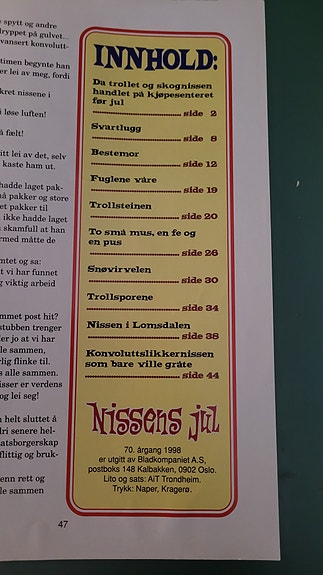 spytt og andre
dryppet på gulvet...
vansert konvolutt-
timen begynte han
er lei av meg, fordi
kret nissene i
i løse luften!
å fælt!
itt lei av det, selv
kaste ham ut.
hadde laget pak-
å pakker og store
et pakker til
ikke hadde laget
skamfull at han
ermed måtte de
mtet og sa:
t vi har funnet
g viktig arbeid
mmet post hit?
stubben trenger
er jo at vi har
le sammen,
rlig flinke til.
s alle sammen.
isser er verdens
og lei seg!
n helt sluttet å
dri senere hel-
atsborgerskap
flittig og bruk-
enn rett og
le sammen
47
INNHOLD:
Da trollet og skognissen
handlet på kjøpesenteret
før jul
side 2
Svartlugg
side 8
Bestemor
side 12
Fuglene våre
side 19
Trollsteinen
side 20
To små mus, en fe og
en pus
side 26
Snøvirvelen
side 30
Trollsporene
side 34
Nissen i Lomsdalen
side 38
Konvoluttslikkernissen
som bare ville gråte
side 44
Nissens jul
70. årgang 1998
er utgitt av Bladkompaniet A.S,
postboks 148 Kalbakken, 0902 Oslo.
Lito og sats: AiT Trondheim.
Trykk: Naper, Kragerø.